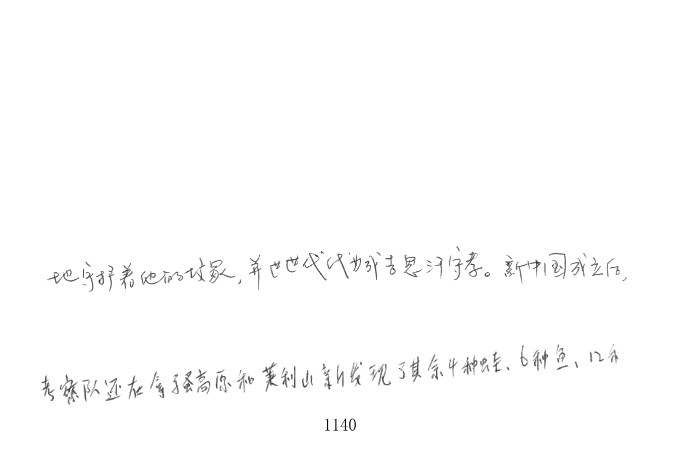 地守护着他的坟冢,并世世代代为成吉思汗守孝。新中国成立后,
考察队还在拿骚高原和莱利山新发现了其余4种蛙、6种鱼、12种
1140